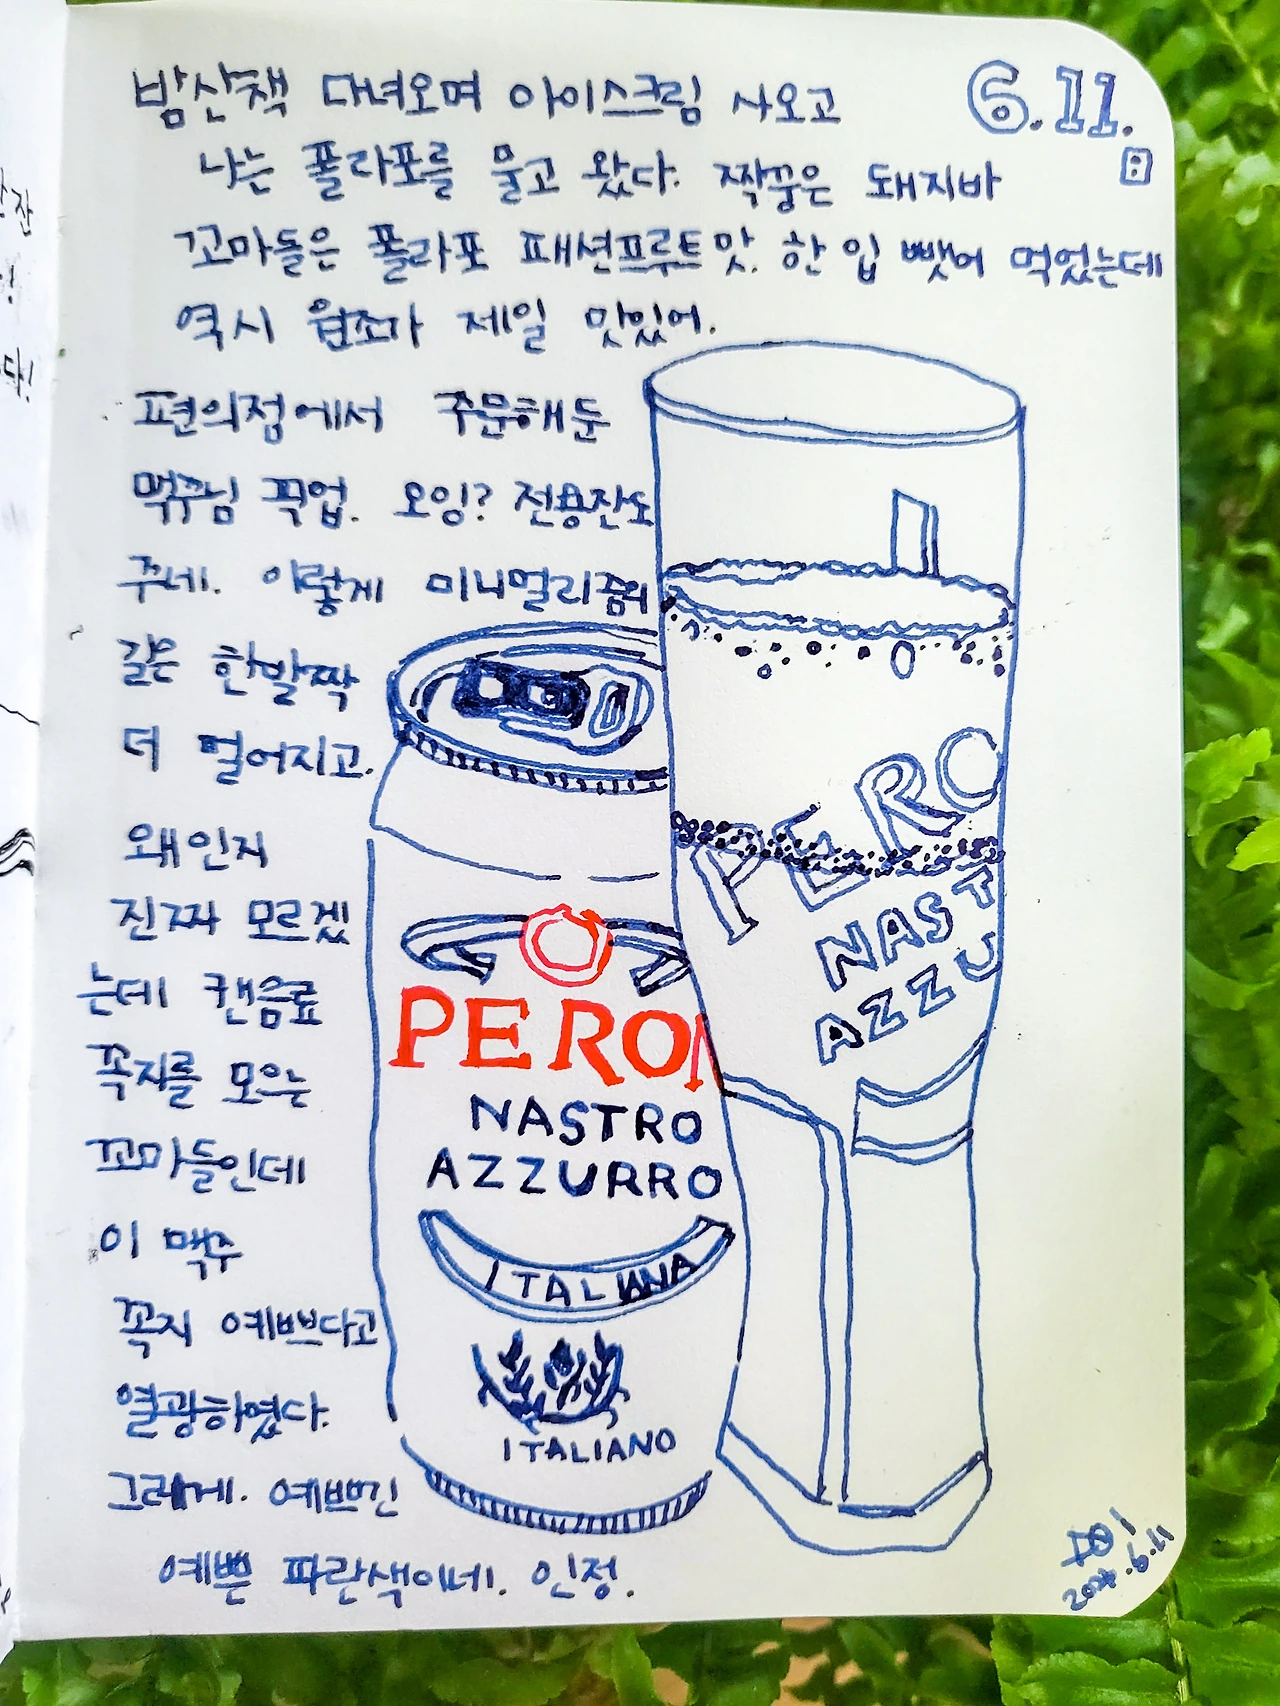 밤산책 다녀오며 아이스크림 사오고
6.11.
나는 폴라포를 물고 왔다. 짝꿍은 돼지바
꼬마들은 폴라포 패션프루트맛. 한 입 뺏어 먹었는데
역시 원조가 제일 맛있어.
편의점에서 주문해둔
맥주님 픽업. 오잉? 전용잔도
주네. 이렇게 미니멀리즘의
길은 한발짝
더 멀어지고.
왜인지
진짜 모르겠
는데 캔음료
꼭지를 모으는
꼬마들인데
이 맥주
꼭지 예쁘다고
열광하였다.
그러게. 예쁘긴
예쁜 파란색이네. 인정.
PERO
NASTRO
AZZURRO
ITALIANA
ITALIANO
PERO
NAST
AZZU
6.11